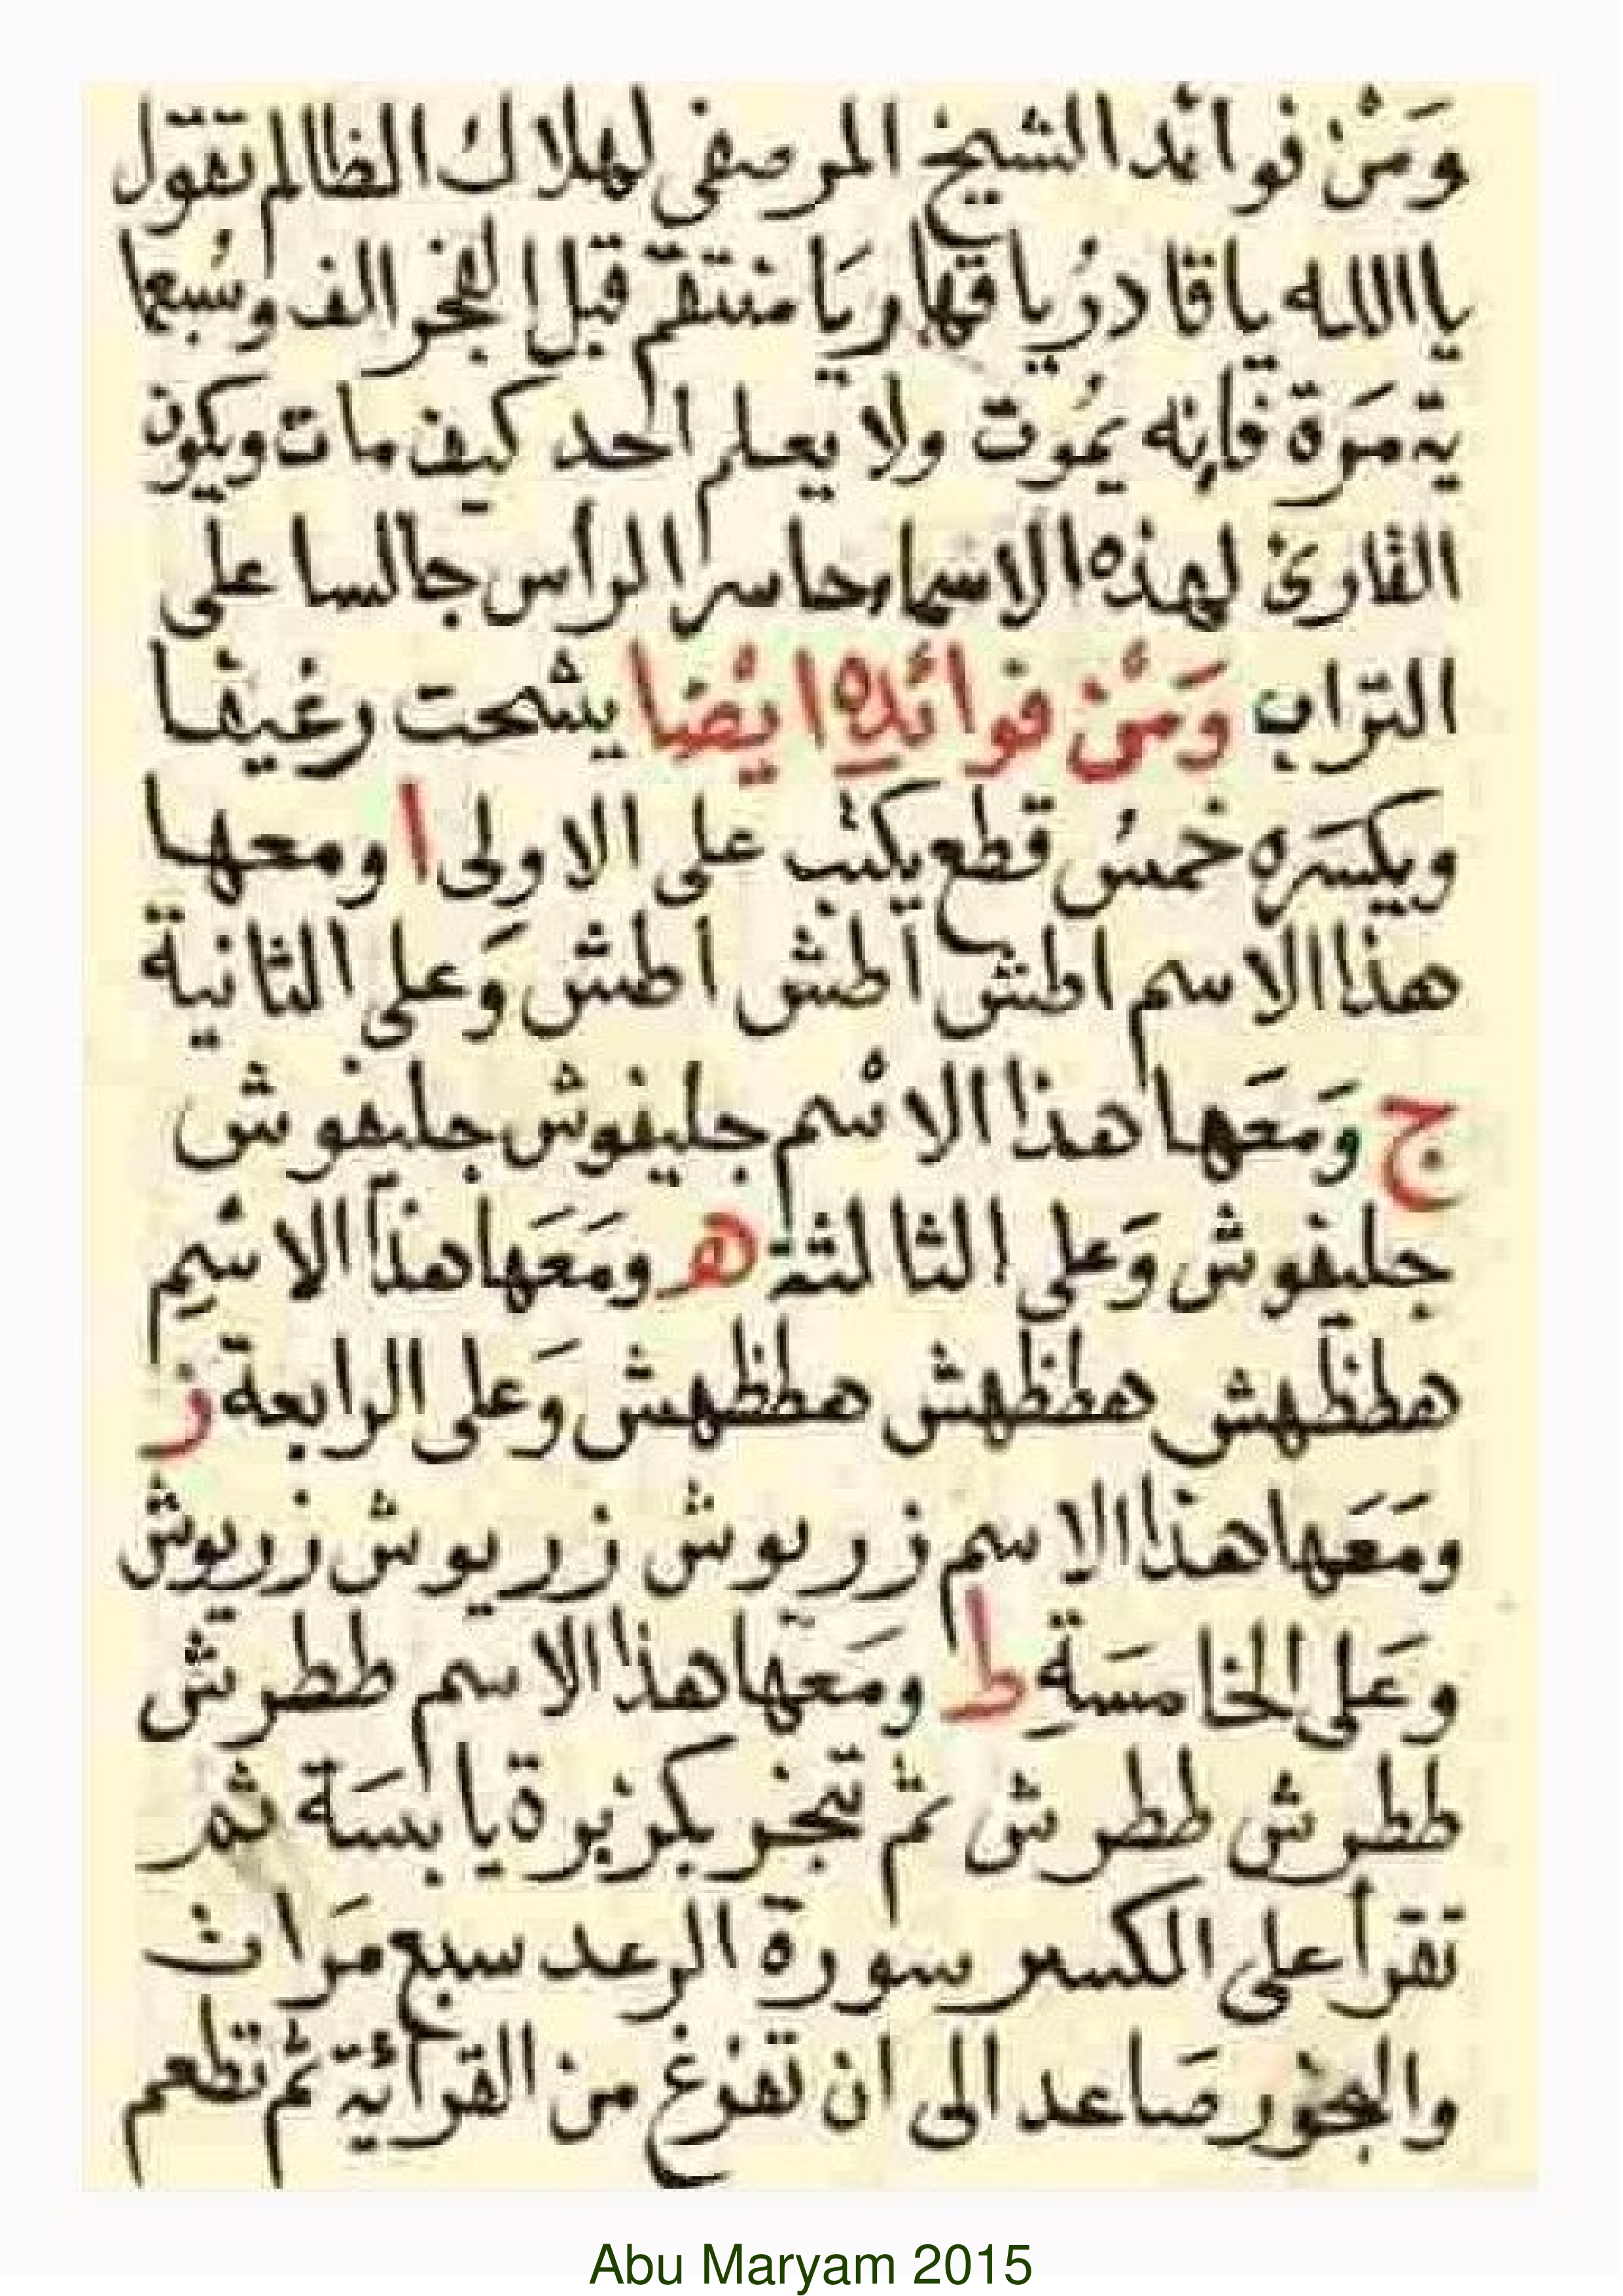 ومن فوائد الشيخ المرصفى لهلاك الظالم تقول
يا الله يا قادر يا قهار يا منتقم قبل الفجر الف وسبعما
ية مرة فانه يموت ولا يعلم احد كيف مات ويكون
القارئ لهذه الاسماء حاسرا الراس جالسا على
التراب ومن فوائده ايضا يشحت رغيفا
ويكسره خمس قطع يكتب على الاولى ا ومعها
هذا الاسم اطش اطش اطش وعلى الثانية
ج ومعها هذا الاسم جليفوش جليفوش
جليفوش وعلى الثالثة هـ ومعها هذا الاسم
هطظهش هطظهش هطظهش وعلى الرابعة ز
ومعها هذا الاسم زريوش زريوش زريوش
وعلى الخامسة ط ومعها هذا الاسم ططرش
ططرش ططرش ثم تبخر بكزبرة يابسة ثم
تقرأ على الكسر سورة الرعد سبع مرات
والبخور صاعد الى ان تفرغ من القرائة ثم تطعم
Abu Maryam 2015